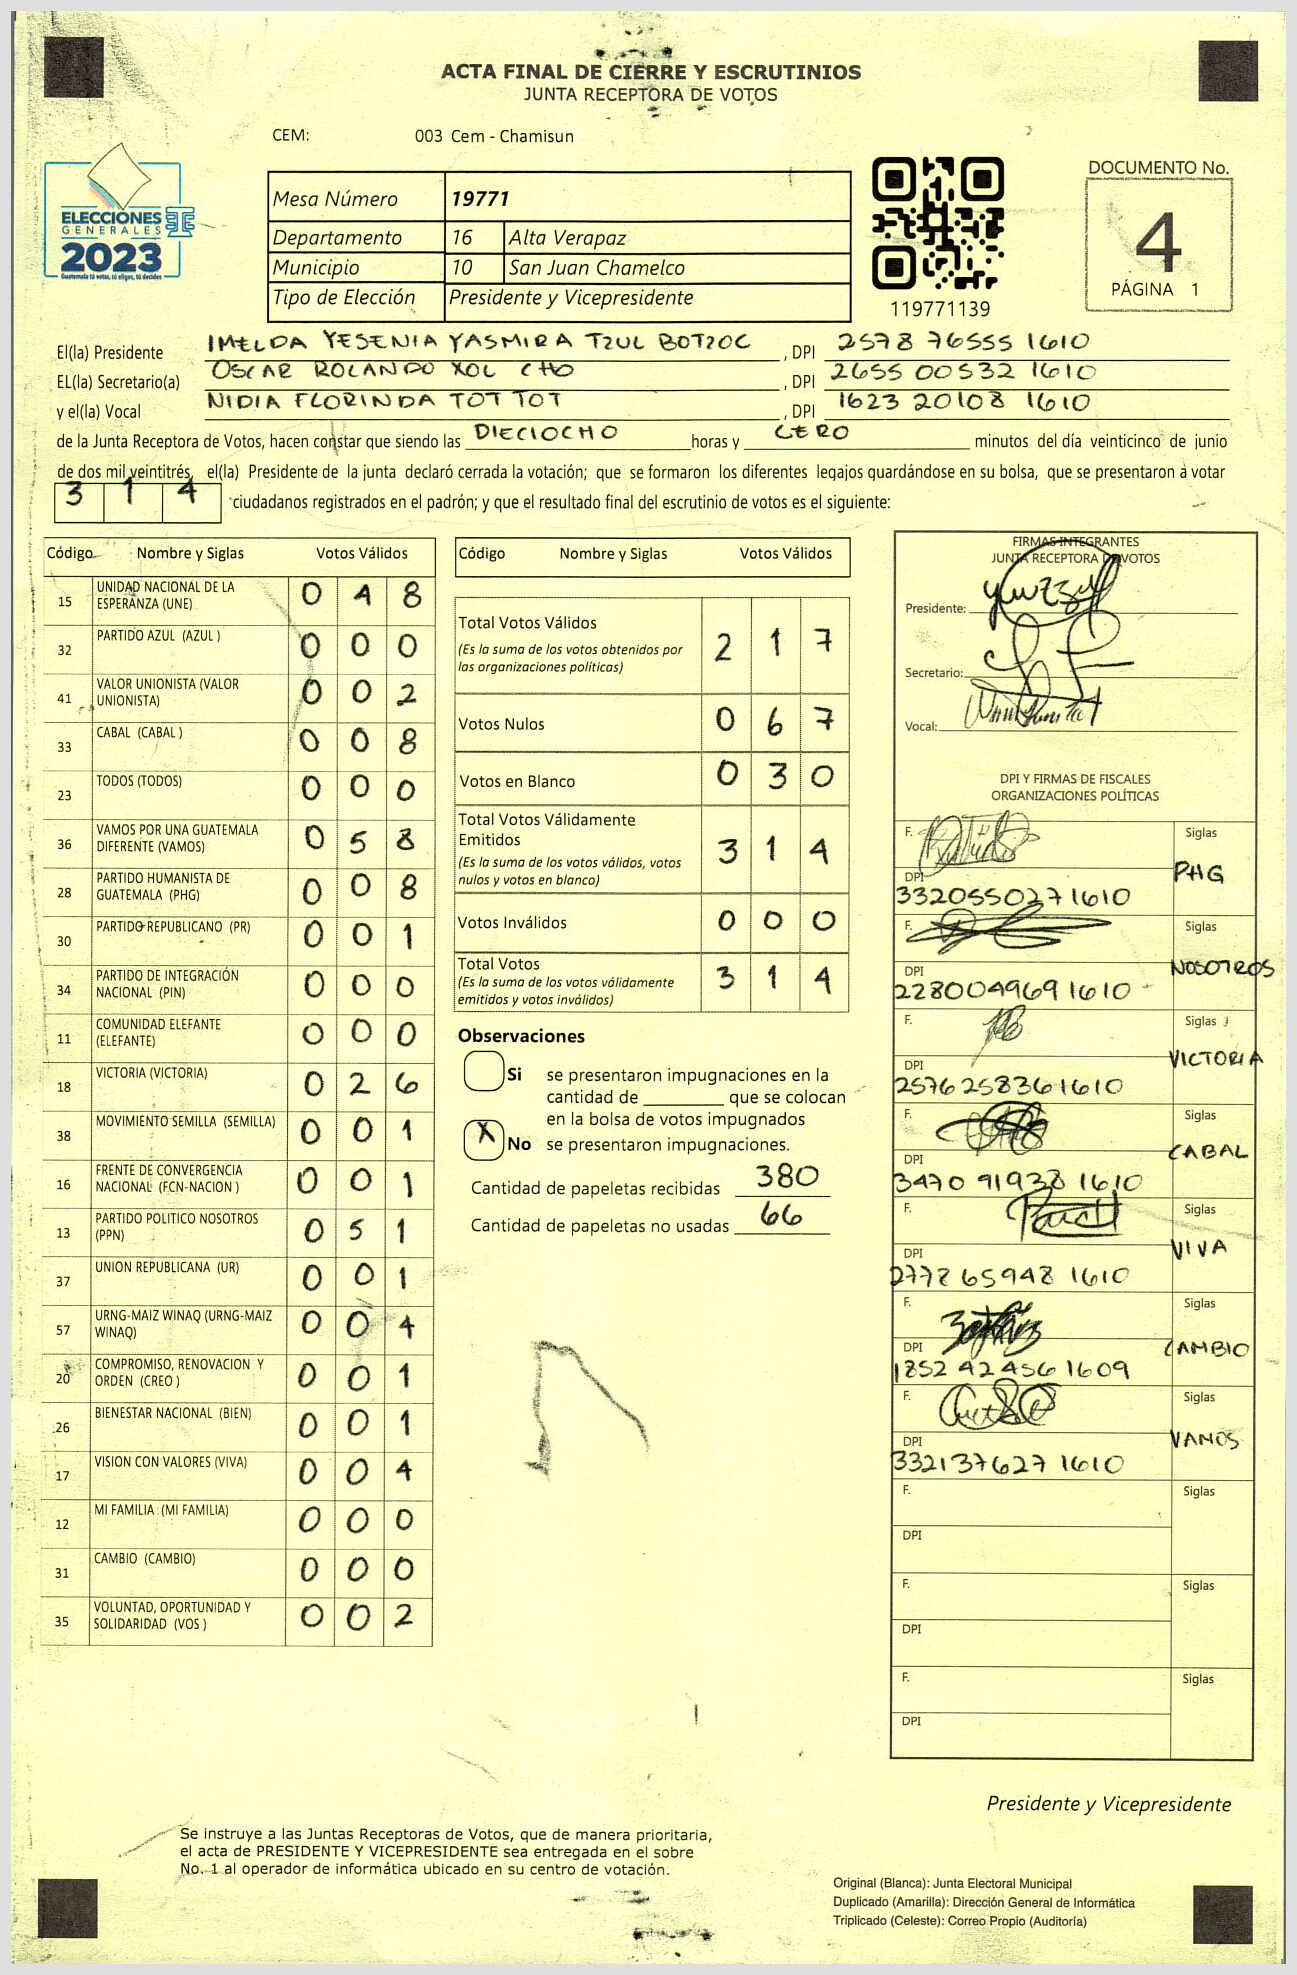 ACTA FINAL DE CIERRE Y ESCRUTINIOS
JUNTA RECEPTORA DE VOTOS
CEM: 003 Cem - Chamisun
ELECCIONES
GENERALES
2023
Guatemala tú votas, tú eliges, tú decides
Mesa Número 19771
Departamento 16 Alta Verapaz
Municipio 10 San Juan Chamelco
Tipo de Elección Presidente y Vicepresidente
119771139
DOCUMENTO No.
4
PÁGINA 1
El(la) Presidente IMELDA YESENIA YASMIRA TZUL BOTZOC , DPI 2578 76555 1610
EL(la) Secretario(a) OSCAR ROLANDO XOL CHO , DPI 2655 00532 1610
y el(la) Vocal NIDIA FLORINDA TOT TOT , DPI 1623 20108 1610
de la Junta Receptora de Votos, hacen constar que siendo las DIECIOCHO horas y CERO minutos del día veinticinco de junio
de dos mil veintitrés, el(la) Presidente de la junta declaró cerrada la votación; que se formaron los diferentes legajos guardándose en su bolsa, que se presentaron a votar
3 1 4 ciudadanos registrados en el padrón; y que el resultado final del escrutinio de votos es el siguiente:
Código Nombre y Siglas Votos Válidos
15 UNIDAD NACIONAL DE LA ESPERANZA (UNE) 0 4 8
32 PARTIDO AZUL (AZUL ) 0 0 0
41 VALOR UNIONISTA (VALOR UNIONISTA) 0 0 2
33 CABAL (CABAL ) 0 0 8
23 TODOS (TODOS) 0 0 0
36 VAMOS POR UNA GUATEMALA DIFERENTE (VAMOS) 0 5 8
28 PARTIDO HUMANISTA DE GUATEMALA (PHG) 0 0 8
30 PARTIDO REPUBLICANO (PR) 0 0 1
34 PARTIDO DE INTEGRACIÓN NACIONAL (PIN) 0 0 0
11 COMUNIDAD ELEFANTE (ELEFANTE) 0 0 0
18 VICTORIA (VICTORIA) 0 2 6
38 MOVIMIENTO SEMILLA (SEMILLA) 0 0 1
16 FRENTE DE CONVERGENCIA NACIONAL (FCN-NACION ) 0 0 1
13 PARTIDO POLITICO NOSOTROS (PPN) 0 5 1
37 UNION REPUBLICANA (UR) 0 0 1
57 URNG-MAIZ WINAQ (URNG-MAIZ WINAQ) 0 0 4
20 COMPROMISO, RENOVACION Y ORDEN (CREO ) 0 0 1
26 BIENESTAR NACIONAL (BIEN) 0 0 1
17 VISION CON VALORES (VIVA) 0 0 4
12 MI FAMILIA (MI FAMILIA) 0 0 0
31 CAMBIO (CAMBIO) 0 0 0
35 VOLUNTAD, OPORTUNIDAD Y SOLIDARIDAD (VOS ) 0 0 2
Código Nombre y Siglas Votos Válidos
Total Votos Válidos 2 1 7
(Es la suma de los votos obtenidos por
las organizaciones políticas)
Votos Nulos 0 6 7
Votos en Blanco 0 3 0
Total Votos Válidamente
Emitidos 3 1 4
(Es la suma de los votos válidos, votos
nulos y votos en blanco)
Votos Inválidos 0 0 0
Total Votos 3 1 4
(Es la suma de los votos válidamente
emitidos y votos inválidos)
Observaciones
Si se presentaron impugnaciones en la
cantidad de ________ que se colocan
en la bolsa de votos impugnados
X No se presentaron impugnaciones.
Cantidad de papeletas recibidas 380
Cantidad de papeletas no usadas 66
FIRMAS INTEGRANTES
JUNTA RECEPTORA DE VOTOS
Presidente:
Secretario:
Vocal:
DPI Y FIRMAS DE FISCALES
ORGANIZACIONES POLÍTICAS
F. Siglas
DPI PHG
3320550271610
F. Siglas
DPI NOSOTROS
2280049691610
F. Siglas
DPI VICTORIA
2576258361610
F. Siglas
DPI CABAL
3470 91938 1610
F. Siglas
DPI VIVA
2778 65948 1610
F. Siglas
DPI CAMBIO
1852 42 456 1609
F. Siglas
DPI VAMOS
332137627 1610
F. Siglas
DPI
F. Siglas
DPI
F. Siglas
DPI
Presidente y Vicepresidente
Se instruye a las Juntas Receptoras de Votos, que de manera prioritaria,
el acta de PRESIDENTE Y VICEPRESIDENTE sea entregada en el sobre
No. 1 al operador de informática ubicado en su centro de votación.
Original (Blanca): Junta Electoral Municipal
Duplicado (Amarilla): Dirección General de Informática
Triplicado (Celeste): Correo Propio (Auditoría)